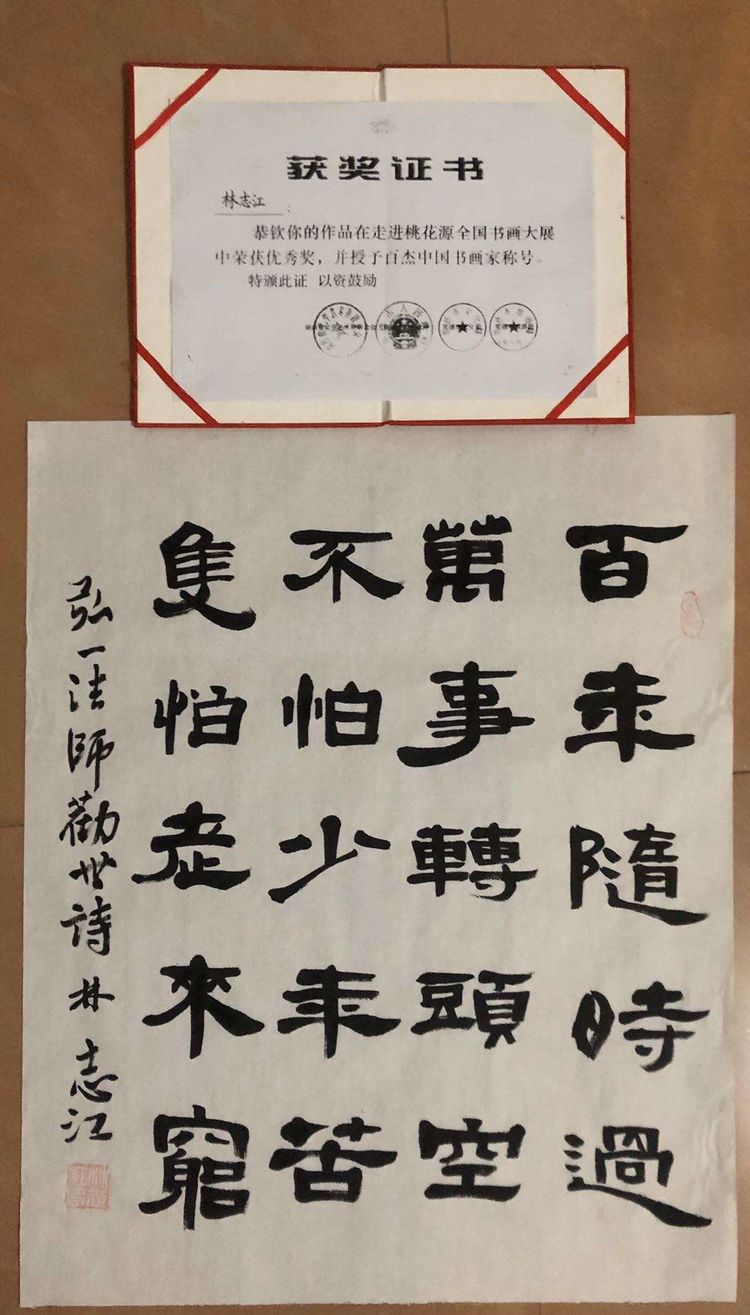 获奖证书
林志江：
恭钦你的作品在走进桃花源全国书画大展
中荣获优秀奖，并授予百杰中国书画家称号。
特颁此证 以资鼓励
百年隨時過
萬事轉頭空
不怕少年苦
隻怕老來窮
弘一法師勸世詩 林志江